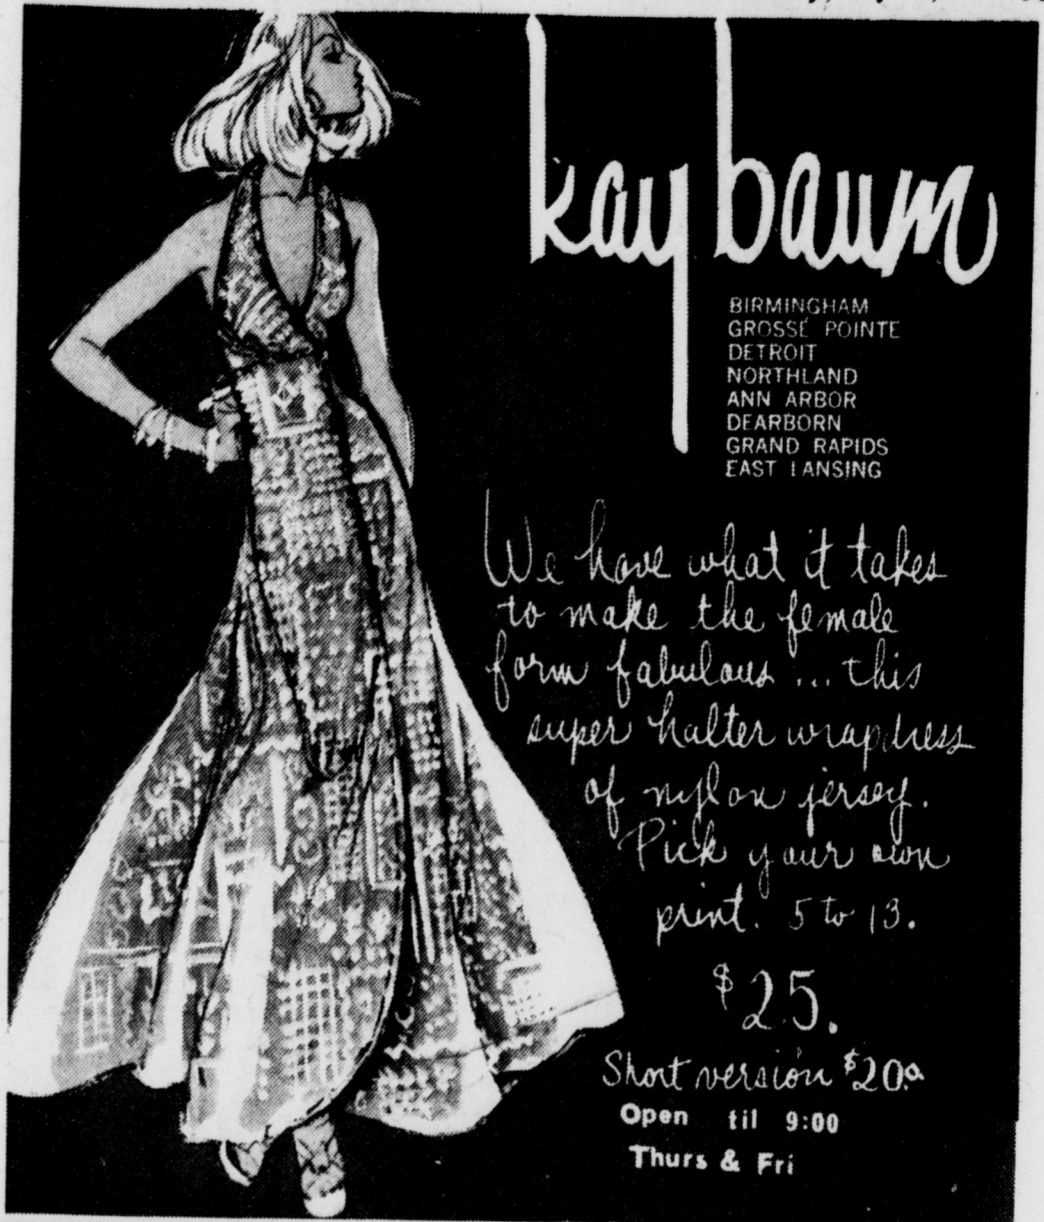 kay baum
BIRMINGHAM
GROSSE POINTE
DETROIT
NORTHLAND
ANN ARBOR
DEARBORN
GRAND RAPIDS
EAST LANSING
We have what it takes
to make the female
form fabulous ... this
super halter wrapdress
of nylon jersey.
Pick your own
print. 5 to 13.
$25.
Short version $20.
Open til 9:00
Thurs & Fri